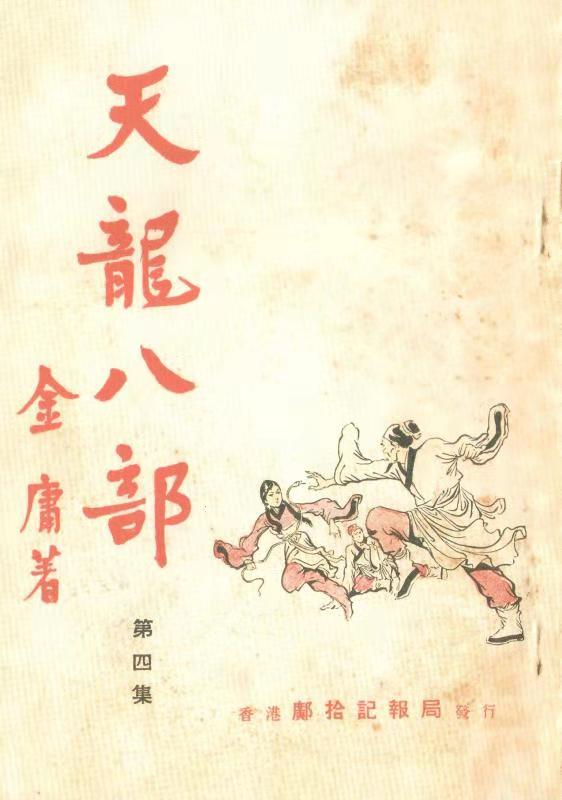 天龍八部
金庸著
第四集
香港鄺拾記報局發行